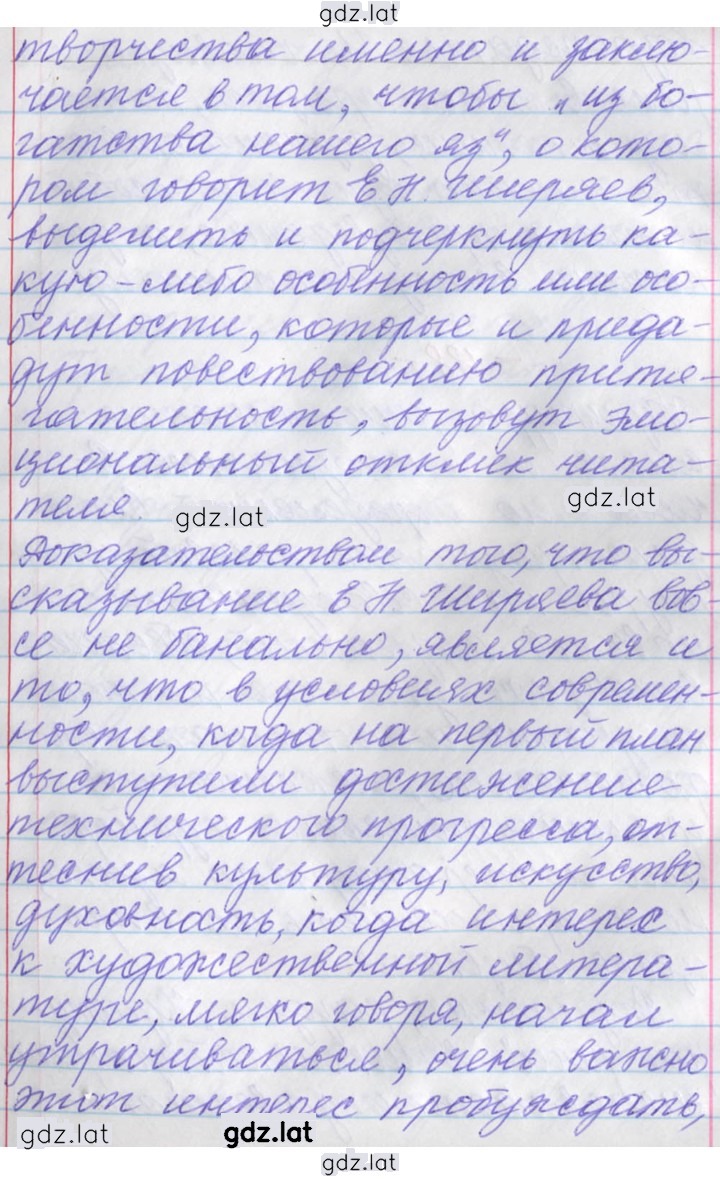 gdz.lat
творчества именно и заклю-
чается в том, чтобы „из бо-
гатства нашего яз“, о кото-
ром говорит Е Н. Ширяев,
выделить и подчеркнуть ка-
кую-либо особенность или осо-
бенности, которые и прида-
дут повествованию притя-
гательность, вызовут эмо-
циональный отклик чита-
теля.
gdz.lat
gdz.lat
Доказательством того, что вы-
сказывание Е Н. Ширяева вов-
се не банально, является и
то, что в условиях современ-
ности, когда на первый план
выступили достижение
технического прогресса, от-
теснив культуру, искусство,
духовность, когда интерес
к художественной литера-
туре, мягко говоря, начал
утрачиваться, очень важно
этот интерес пробуждать,
gdz.lat
gdz.lat
gdz.lat